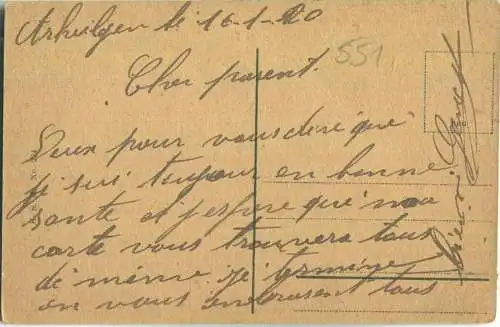 Arheilgen le 16-1-20
551
Cher parent.
Deux pour vous dire que
je sui toujour en bonne
sante et j'espère que nou
carte vous trouvera tous
de même je termine
en vous embrasent tous
No.